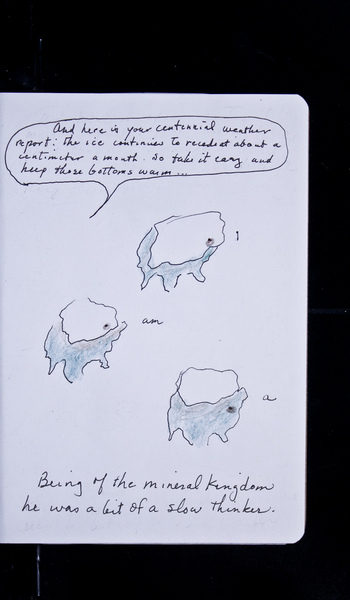 And here is your centennial weather
report: The ice continues to recede at about a
centimeter a month. So take it easy and
keep those bottoms warm...
I
am
a
Being of the mineral kingdom
he was a bit of a slow thinker.